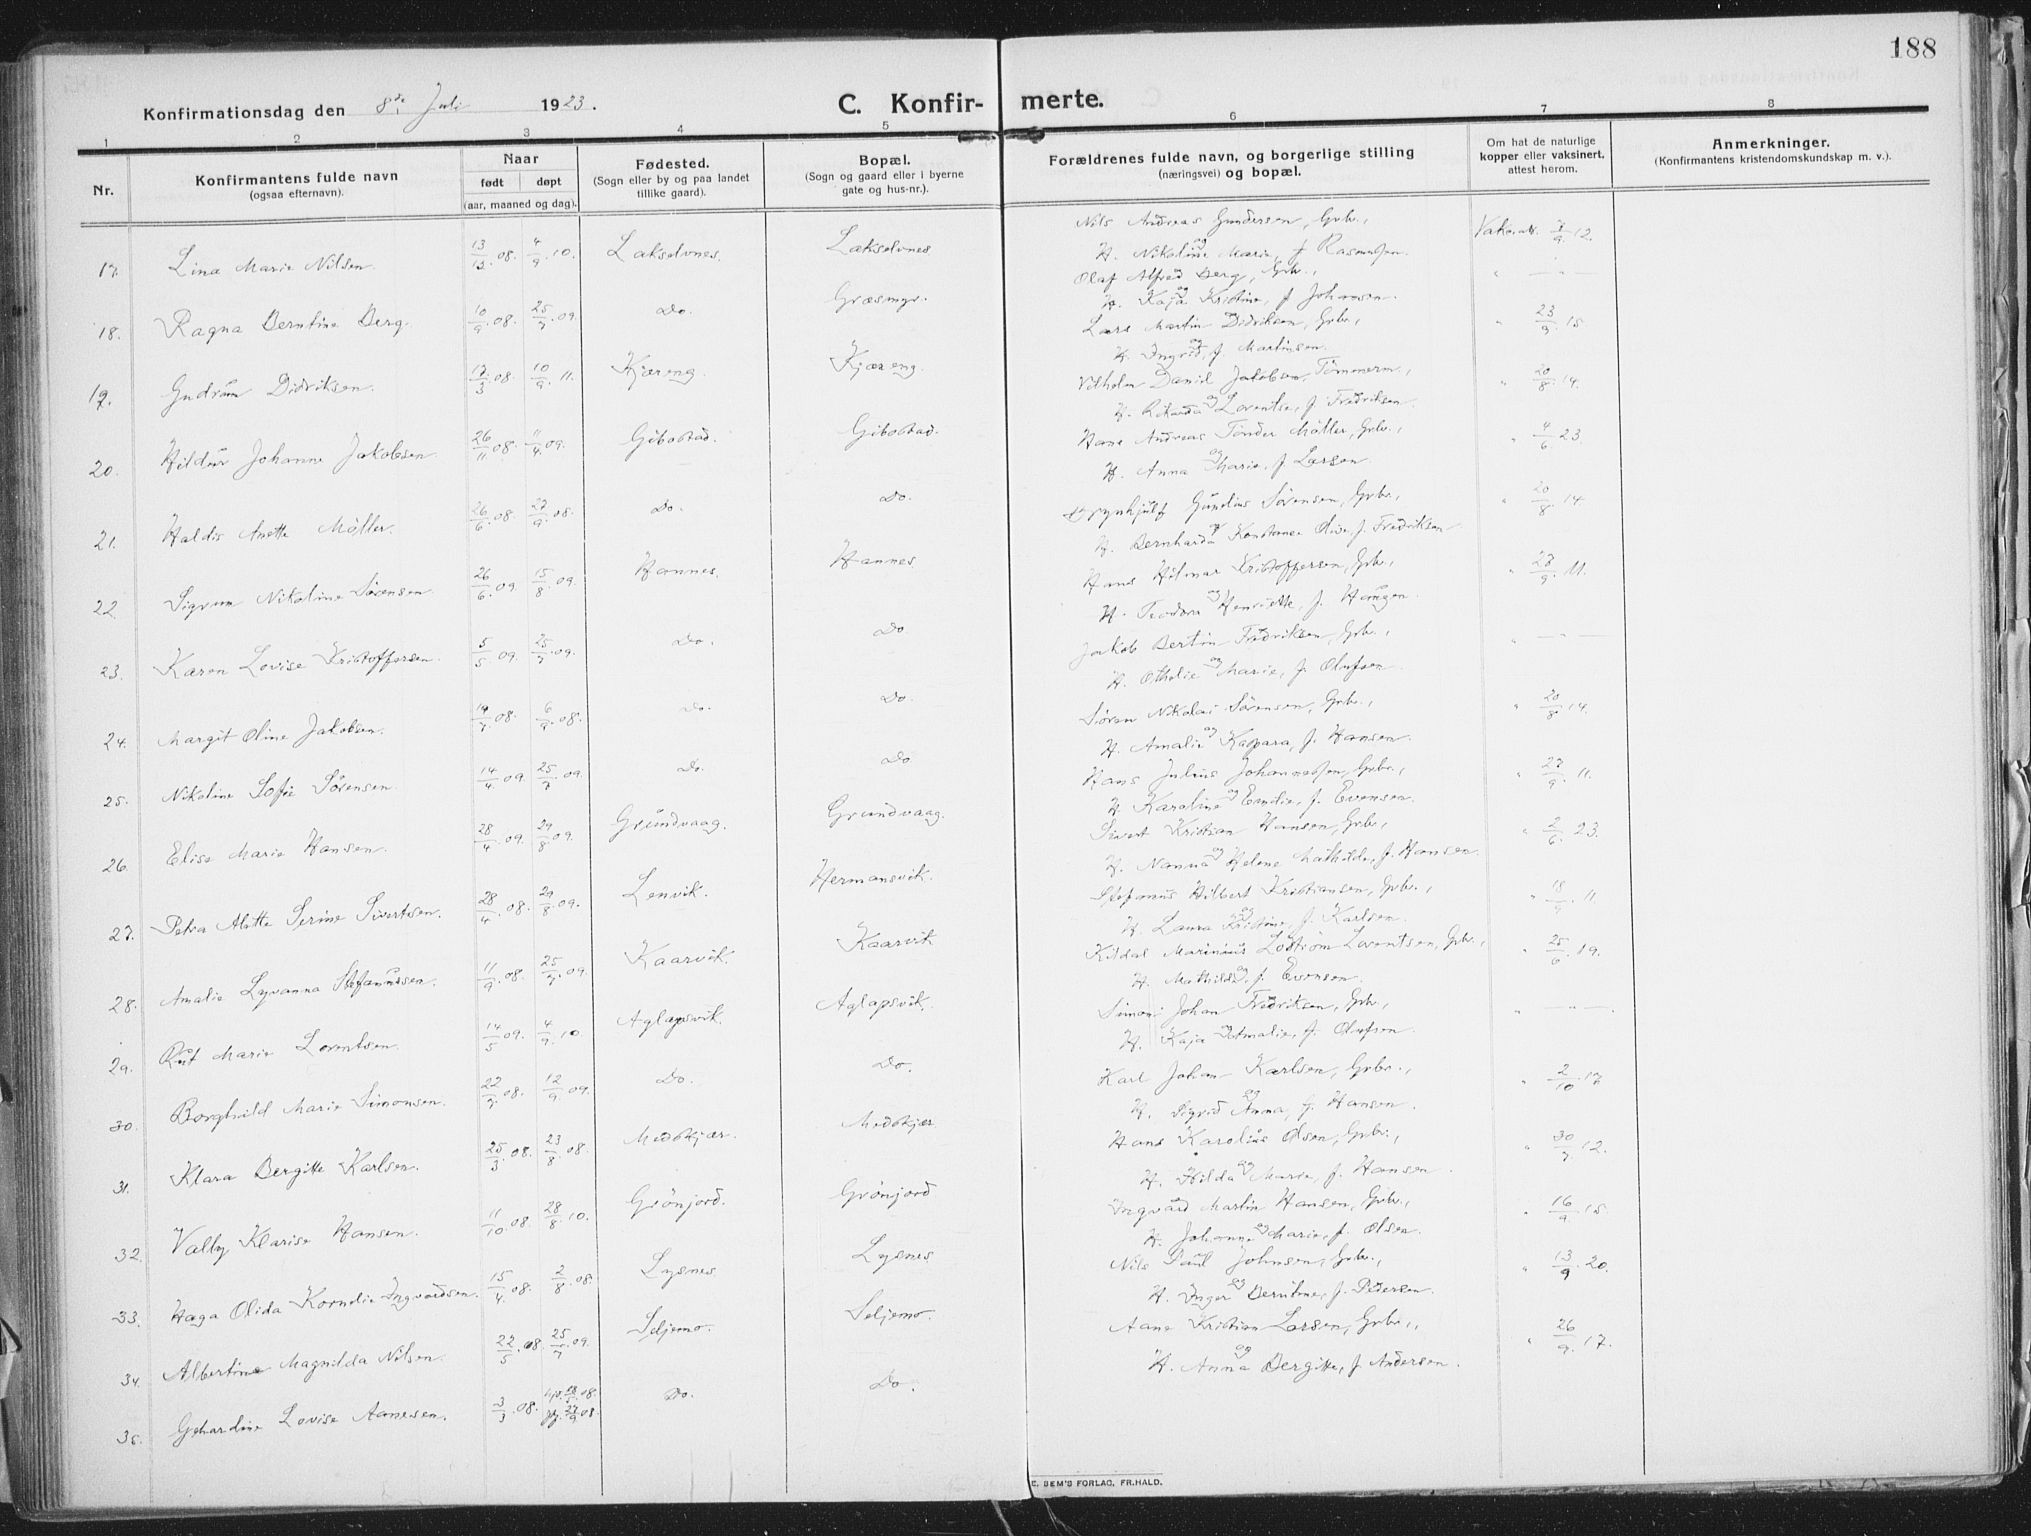 188
Konfirmationsdag den 8de Juli 1923.
C. Konfirmerte.
1 2 3 4 5 6 7 8
Nr. Konfirmantens fulde navn (ogsaa efternavn). Naar født døpt (aar, maaned og dag). Fødested. (Sogn eller by og paa landet tillike gaard). Bopæl. (Sogn og gaard eller i byerne gate og hus-nr.). Forældrenes fulde navn, og borgerlige stilling (næringsvei) og bopæl. Om hat de naturlige kopper eller vaksinert, attest herom. Anmerkninger. (Konfirmantens kristendomskundskap m. v.).
17. Lina Marie Nilsen. 13/12.08. 4/9.10. Lakselvnes. Lakselvnes Nils Andreas Gundersen, Gvbr.,
og H. Nikoline Marie, f. Rasmussen.
18. Ragna Berntine Berg. 10/9.08. 25/7.09. Do. Græsmyr. Olaf Alfred Berg, Gvbr., " — " —
og H. Kaja Kristine, f. Johansen.
19. Gudrun Didriksen. 17/3.08. 10/9.11. Kjæreng. Kjæreng. Lars Martin Didriksen, Gvbr., " 23/9.15.
og H. Ingrid, f. Martinsen.
20. Hildur Johanne Jakobsen. 26/11.08. 11/4.09. Gibostad. Gibostad. Vilhelm Daniel Jakobsen, Tømmerm., " 20/8.14.
og H. Rikarda Lorentse, f. Fredriksen.
21. Haldis Anette Møller. 26/6.08. 27/9.08. Do. Do. Hans Andreas Tønder Møller, Gvbr., " 4/6 23.
og H. Anna Marie, f. Larsen.
22. Sigrun Nikoline Sørensen. 26/6.09. 15/8.09. Hannes. Hannes. Brynhjulf Gundius Sørensen, Gvbr., " 20/8.14
og H. Bernharda Konstance Olive, f. Fredriksen
23. Karen Lovise Kristoffersen. 5/5.09. 25/7.09. Do. Do. Hans Hilmar Kristoffersen, Gvbr., " 27/9.11.
og H. Teodora Henriette, f. Haugen.
24. Margit Oline Jakobsen. 19/7.08. 6/9.08. Do. Do. Jakob Bertin Fredriksen, Gvbr., " — " —
og H. Othelie Marie, f. Olufsen.
25. Nikoline Sofie Sørensen. 14/4.09. 25/7.09. Do. Do Søren Nikolai Sørensen, Gvbr., " 20/8.14.
og H. Amalie Kaspara, f. Hansen.
26. Elise Marie Hansen. 28/4.09. 29/8.09. Grundvaag. Grundvaag. Hans Julius Johannessen, Gvbr., " 27/9.11.
og H. Karoline Emilie, f. Evensen.
27. Petra Alette Serine Sivertsen. 28/4.08. 29/8.09. Lenvik. Hermansvik. Sivert Kristian Hansen, Gvbr., " 2/6.23.
og H. Nanna Helene Mathilde, f. Hansen.
28. Amalie Lyvanna Stefanussen. 11/9.08. 25/7.09. Kaarvik. Kaarvik Stefanus Hilbert Kristiansen, Gvbr., " 18/9.11.
og H. Laura Kristine, f. Karlsen.
29. Rut Marie Lorentsen. 14/5.09. 4/9.10. Aglapsvik. Aglapsvik. Kildal Marinius Lorentsen, Gvbr., " 25/6.19.
og H. Mathilde, f. Evensen.
30. Borghild Marie Simonsen. 22/7.08. 12/9.09. Do. Do. Simon Johan Fredriksen, Gvbr., " — " —.
og H. Kaja Amalie, f. Olufsen.
31. Klara Bergitte Karlsen. 25/3.08. 23/8.08. Medskjær. Medskjær Karl Johan Karlsen, Gvbr., " 2/10.17
og H. Sigrid Anna, f. Hansen.
32. Valby Klarise Hansen. 11/10.08. 28/8.10. Grönjord. Grönjord Hans Karolius Olsen, Gvbr., " 30/7.12.
og H. Hilda Marie, f. Hansen.
33. Haga Olida Kornelie Ingvardsen. 15/4.08. 2/8.08. Lysnes. Lysnes Ingvard Martin Hansen, Gvbr., " 16/9.15.
og H. Johanna Marie, f. Olsen.
34. Albertine Magnilda Nilsen. 22/5.08. 25/7.09. Seljemo. Seljemo. Nils Paul Johnsen, Gvbr., " 13/9.20.
og H. Inger Berntine, f. Pedersen.
35. Gerhardine Lovise Aanesen. 3/3.08. Do. Do. Aane Kristian Larsen, Gvbr., " 26/9.17.
og H. Anna Bergitte, f. Andersen.
E. SEM'S FORLAG, FR.HALD.